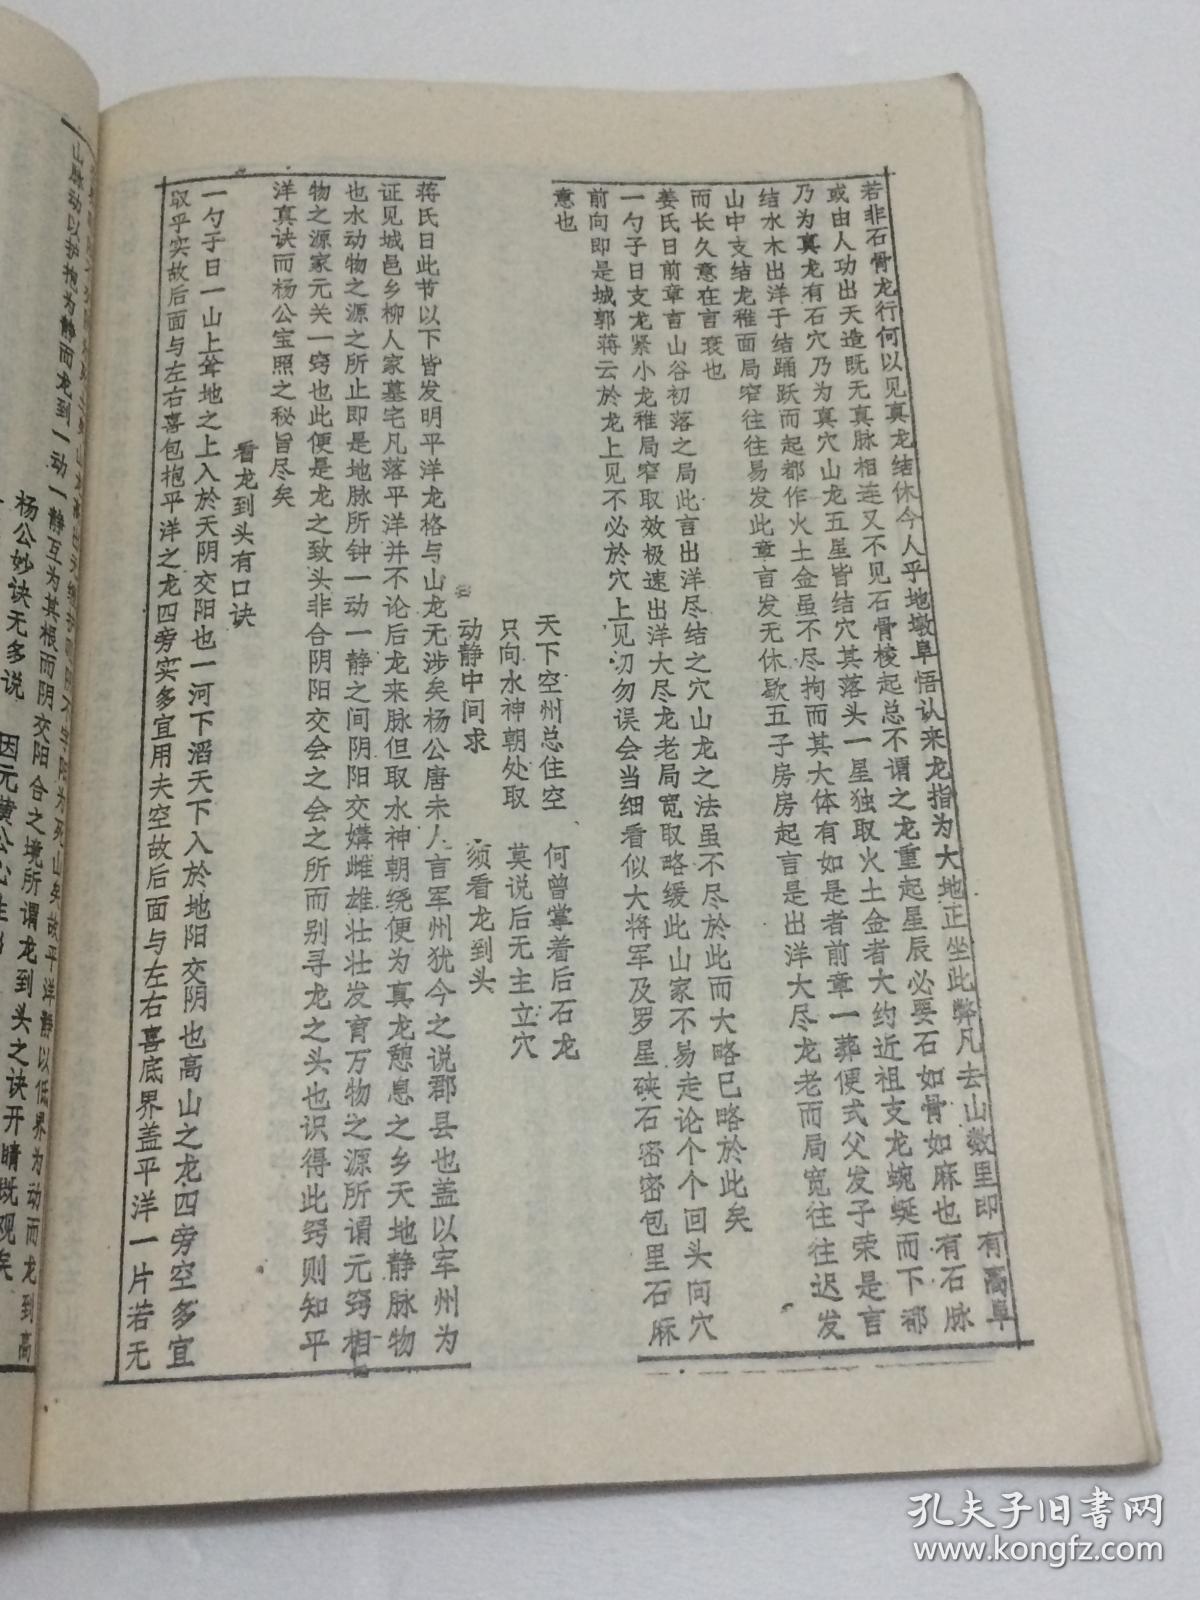 若非石骨龙行何以见真龙结休今人乎地墩阜悟认来龙指为大地正坐此弊凡去山数里即有高阜
或由人功出天造既无真脉相连又不见石骨棱起总不谓之龙重起星辰必要石如骨如麻也有石脉
乃为真龙有石穴乃为真穴山龙五星皆结穴其落头一星独取火土金者大约近祖支龙蜿蜒而下都
结水木出洋于结踊跃而起都作火土金虽不尽拘而其大体有如是者前章一葬便式父发子荣是言
山中支结龙稚面局窄往往易发此章言发无休歇五子房房起言是出洋大尽龙老而局宽往往迟发
而长久意在言衰也
姜氏日前章言山谷初落之局此言出洋尽结之穴山龙之法虽不尽於此而大略已略於此矣
一勺子日支龙紧小龙稚局窄取效极速出洋大尽龙老局宽取略缓此山家不易走论个个回头向穴
前向即是城郭蒋云於龙上见不必於穴上见切勿误会当细看似大将军及罗星硖石密密包里石麻
意也
天下空州总住空 何曾掌着后石龙
只向水神朝处取 莫说后无主立穴
动静中间求 须看龙到头
蒋氏日此节以下皆发明平洋龙格与山龙无涉矣杨公唐未人言军州犹今之说郡县也盖以军州为
证见城邑乡柳人家墓宅凡落平洋并不论后龙来脉但取水神朝绕便为真龙憩息之乡天地静脉物
也水动物之源之所止即是地脉所钟一动一静之间阴阳交媾雌雄壮壮发育万物之源所谓元窍相
物之源家元关一窍也此便是龙之致头非合阴阳交会之会之所而别寻龙之头也识得此窍则知平
洋真诀而杨公宝照之秘旨尽矣
看龙到头有口诀
一勺子日一山上耸地之上入於天阴交阳也一河下滔天下入於地阳交阴也高山之龙四旁空多宜
取乎实故后面与左右喜包抱平洋之龙四旁实多宜用夫空故后面与左右喜底界盖平洋一片若无
山脉动以护抱为静而龙到一动一静互为其根而阴交阳合之境所谓龙到头之诀开睛既观矣
杨公妙诀无多说 因元黄公心
孔夫子旧书网
www.kongfz.com